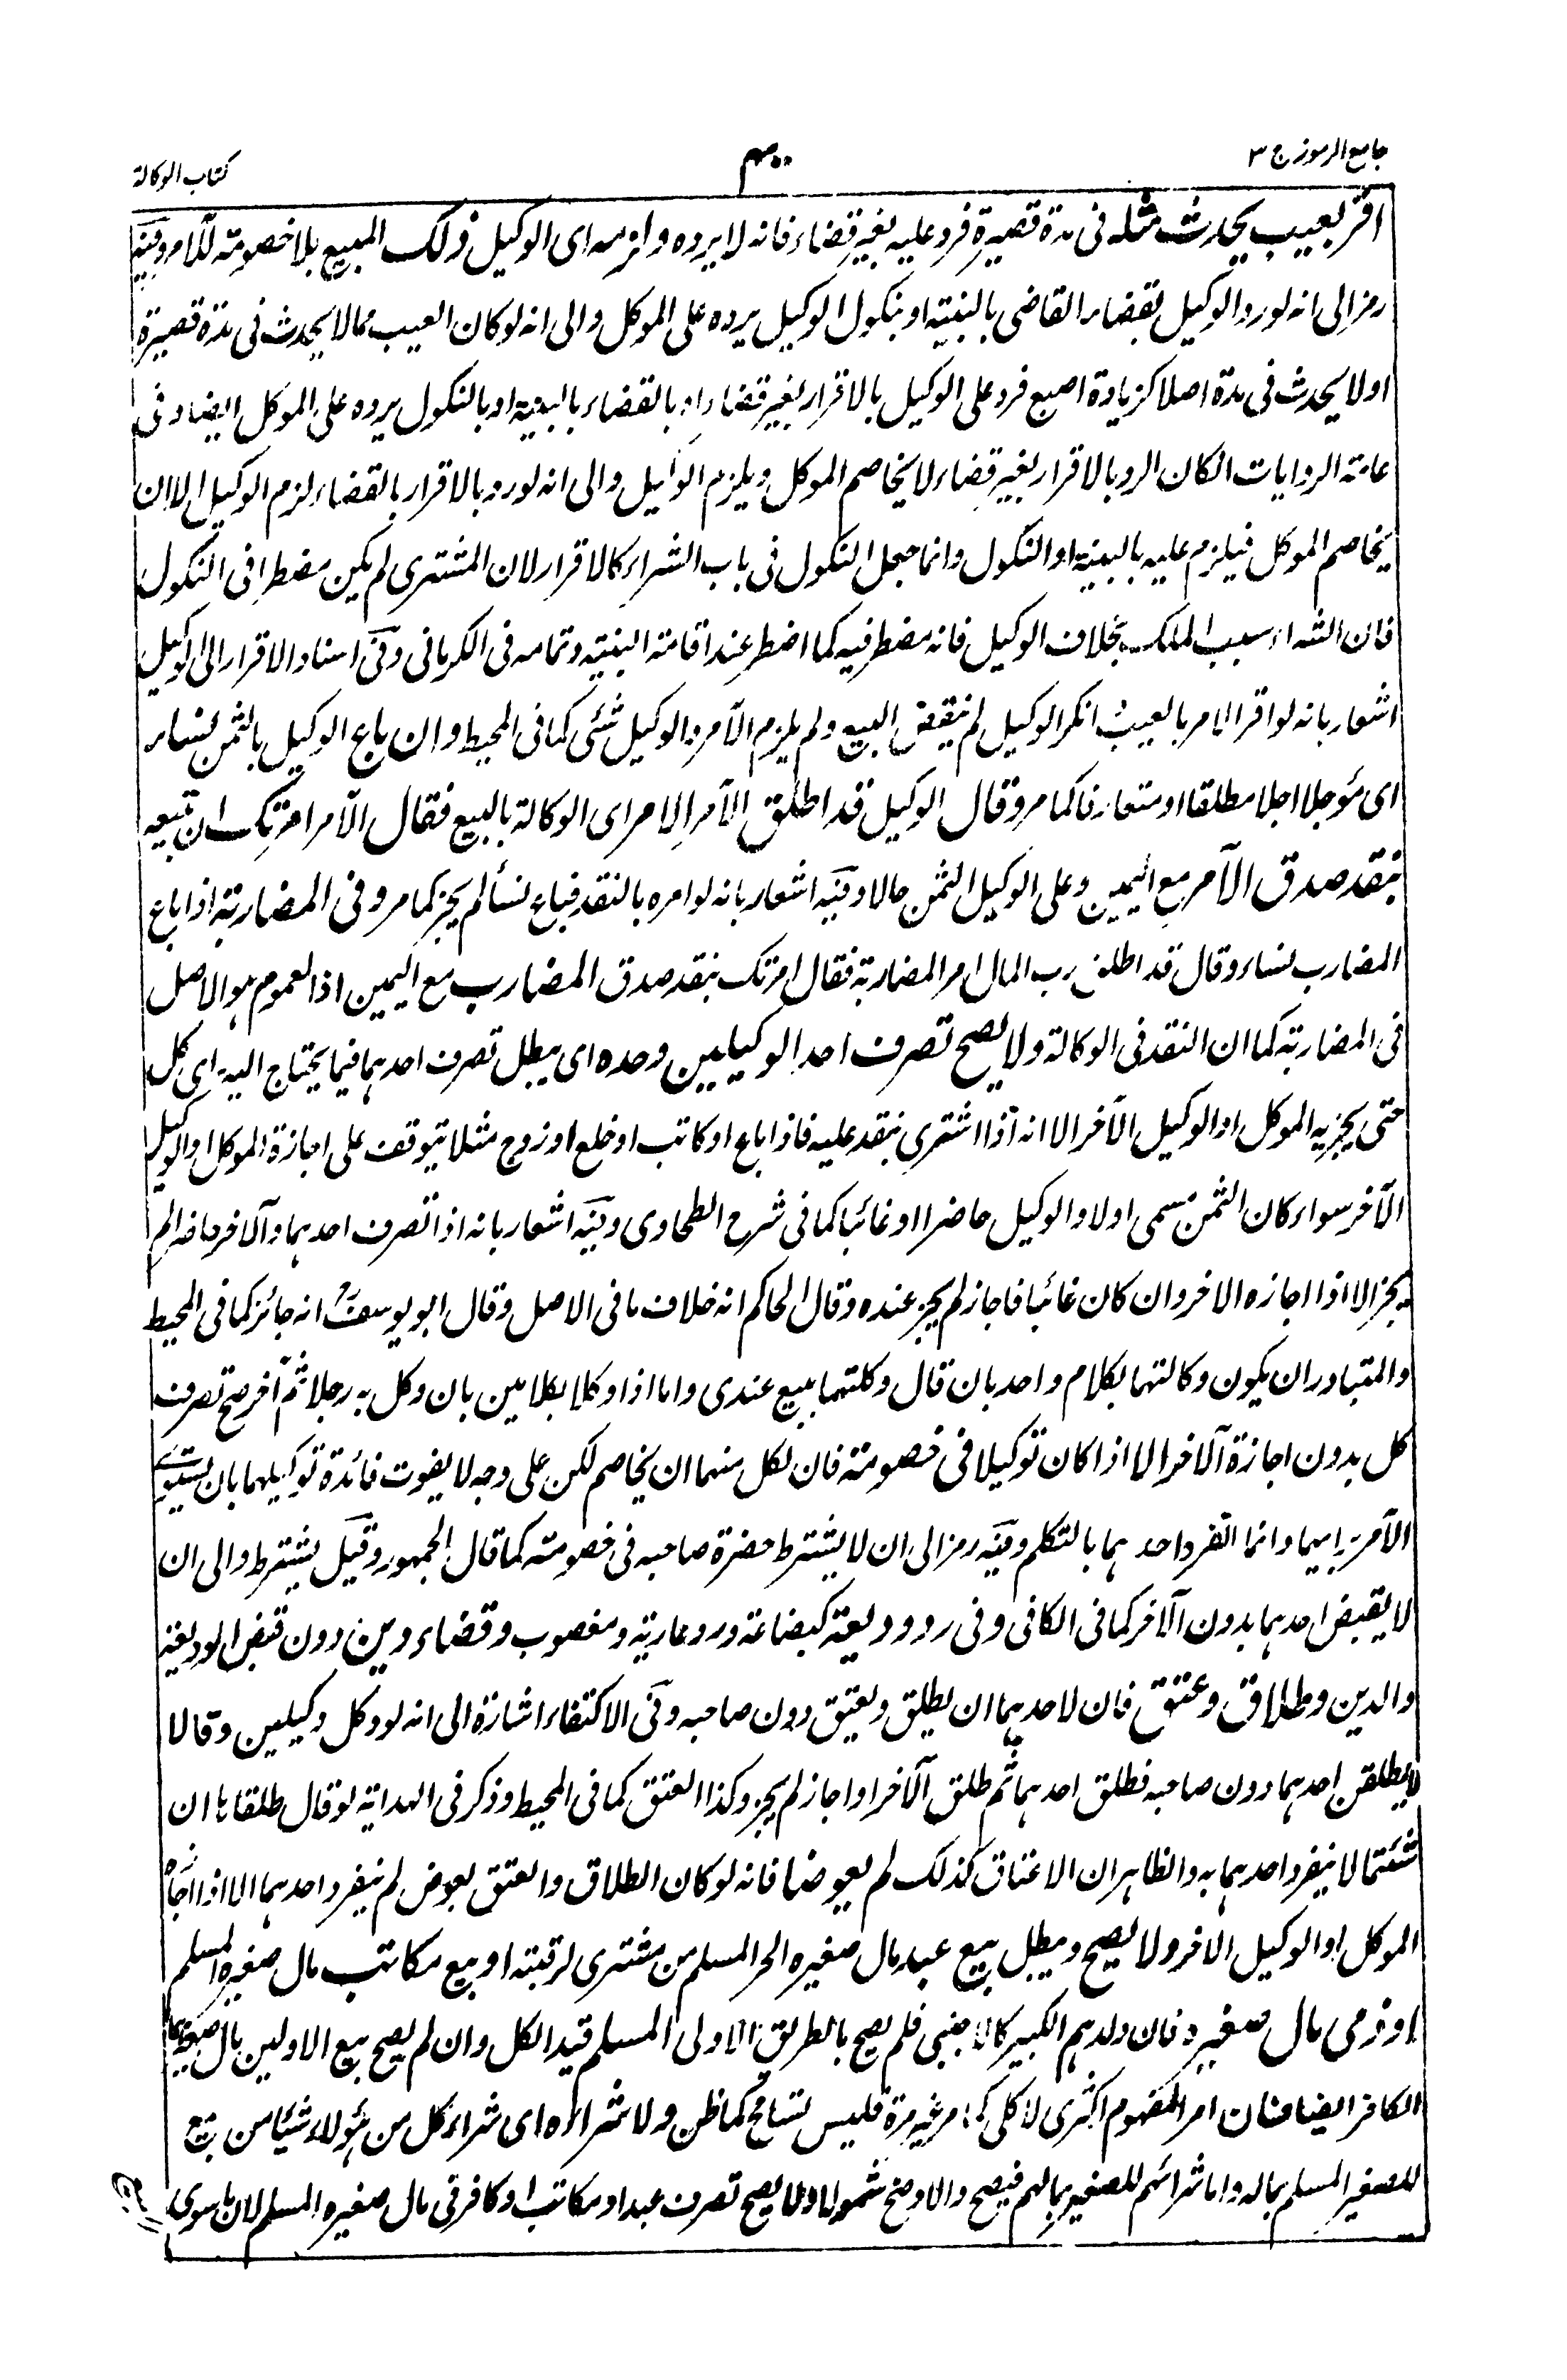 جامع الرموز ج ٣
٤٠٠
كتاب الوكالة
اقر بعيب يحدث مثله فى مدة قصيرة فرد عليه بغير قضاء فانه لا يرده ولزمه اى الوكيل ذلك المبيع بلا خصومة للآمر وفيه
رمز الى انه لو رد الوكيل بقضاء القاضى بالبينة او بنكول الوكيل يرده على الموكل والى انه لو كان العيب مما لا يحدث فى مدة قصيرة
او لا يحدث فى مدة اصلا كزيادة اصبع فرد على الوكيل بالاقرار بغير قضاء او بالقضاء بالبينة او بالنكول يرده على الموكل ايضا وفى
عامة الروايات ان كان الرد بالاقرار بغير قضاء لا يخاصم الموكل ويلزم الوكيل والى انه لو رد بالاقرار بالقضاء لزم الوكيل الا ان
يخاصم الموكل فيلزم عليه بالبينة او النكول وانما جعل النكول فى باب الشراء كالاقرار لان المشترى لم يكن مضطرا فى النكول
فان الشراء سبب الملك بخلاف الوكيل فانه مضطر فيه كما اضطر عند اقامة البينة وتمامه فى الكرمانى وفى اسناد الاقرار الى الوكيل
اشعار بانه لو اقر الآمر بالعيب انكر الوكيل لم ينقض البيع ولم يلزم الآمر والوكيل شئ كما فى المحيط وان باع الوكيل بالثمن نساء
اى مؤجلا اجلا مطلقا او متعارفا كما مر وقال الوكيل قد اطلق الآمر الامر اى الوكالة بالبيع فقال الآمر امرتك ان تبيعه
بنقد صدق الآمر مع اليمين وعلى الوكيل الثمن حالا وفيه اشعار بانه لو امره بالنقد فباع نسأ لم يجز كما مر وفى المضاربة اذا باع
المضارب نساء وقال قد اطلق رب المال امر المضاربة فقال امرتك بنقد صدق المضارب مع اليمين اذ العموم هو الاصل
فى المضاربة كما ان النقد فى الوكالة ولا يصح تصرف احد الوكيلين وحده اى يبطل تصرف احدهما فيما يحتاج اليه اى كل
حتى يجزيه الموكل او الوكيل الآخر الا انه اذا اشترى ينفذ عليه فاذا باع او كاتب او خلع او زوج مثلا يتوقف على اجازة الموكل او الوكيل
الآخر سواء كان الثمن مسمى اولا والوكيل حاضرا او غائبا كما فى شرح الطحاوى وفيه اشعار بانه اذا تصرف احدهما والآخر حاضر لم
يجز الا اذا اجازه الاخر وان كان غائبا فاجاز لم يجز عنده وقال الحاكم انه خلاف ما فى الاصل وقال ابو يوسف رح انه جائز كما فى المحيط
والمتبادر ان يكون وكالتهما بكلام واحد بان قال وكلتهما ببيع عبدى واما اذا وكلا بكلامين بان وكل به رجلا ثم آخر صح تصرف
كل بدون اجازة الآخر الا اذا كان توكيلا فى خصومة فان لكل منهما ان يخاصم لكن على وجه لا يفوت فائدة توكيلهما بان يستوى
الآمر رايهما وانما انفرد احدهما بالتكلم وفيه رمز الى ان لا يشترط حضرة صاحبه فى خصومته كما قال الجمهور وقيل يشترط والى ان
لا يقبض احدهما بدون الآخر كما فى الكافى وفى رد وديعة كبضاعة ورد عارية ومغصوب وقضاء دين دون قبض الوديعة
والدين وطلاق وعتق فان لاحدهما ان يطلق ويعتق دون صاحبه وفى الاكتفاء اشارة الى انه لو وكل وكيلين وقال لا
لا يطلقن احدهما دون صاحبه فطلق احدهما ثم طلق الآخر او اجاز لم يجز وكذا العتق كما فى المحيط وذكر فى الهداية لو قال طلقاها ان
شئتما لا ينفرد احدهما به والظاهر ان الاعتاق كذلك لم يعوضا فانه لو كان الطلاق والعتق بعوض لم ينفرد احدهما الا اذا اجازه
الموكل او الوكيل الآخر ولا يصح ويبطل بيع عبد مال صغيره الحر المسلم من مشترى لرقبته او بيع مكاتب مال صغيره المسلم
او ذمى مال صغيره فان ولدهم الكبير كالاجنبى فلم يصح بالطريق الاولى المسلم قيد الكل وان لم يصح بيع الاولين مال
الكافر ايضا فان امر المفهوم اكثرى لا كلى كما مر غير مرة فليس بتسامح كما ظن ولا شراؤه اى شراء كل من هؤلاء شيئا من بيع
للصغير المسلم بماله واما شرائهم للصغير بمالهم فيصح والاوضح شمولا ولا يصح تصرف عبد او مكاتب او كافر فى مال صغيره المسلم لان ما سوى